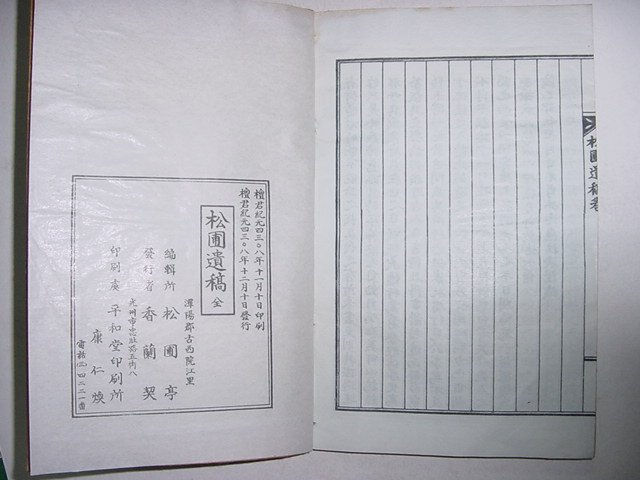 松圃遺稿卷
檀君紀元四三〇八年十一月十日印刷
檀君紀元四三〇八年十二月十日發行
松圃遺稿 全
潭陽郡古西院江里
編輯所 松圃亭
發行者 香蘭契
光州市忠壯路五街八
印刷處 平和堂印刷所
康仁煥